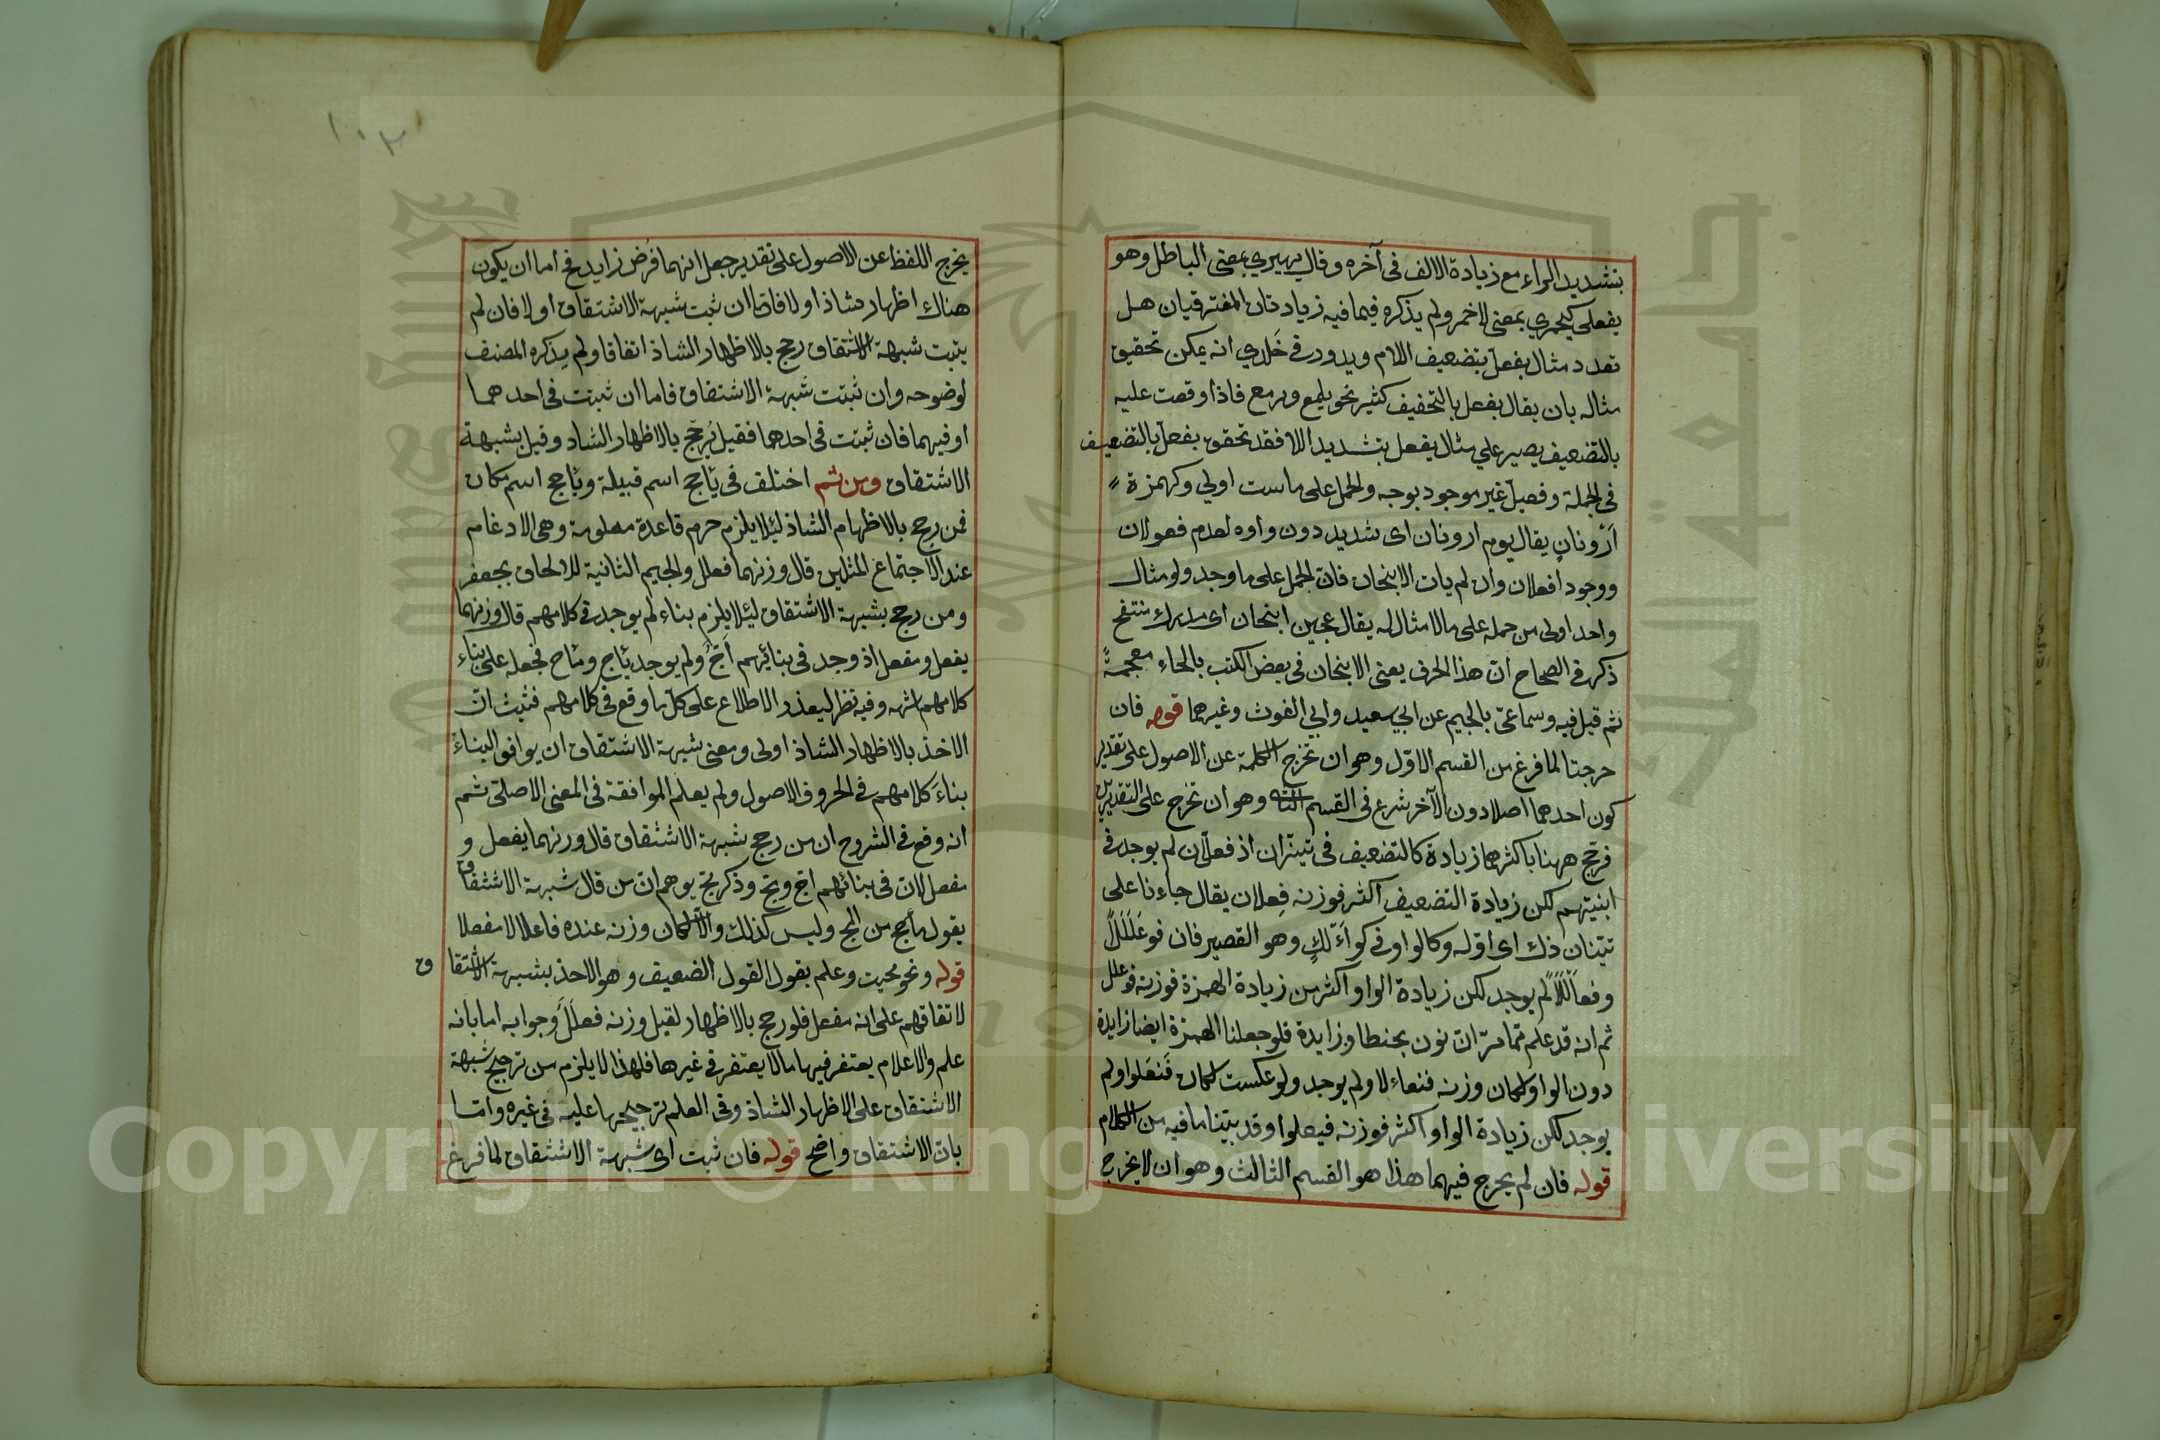 بتشديد الراء مع زيادة الالف فى آخره وقال يهيري بمعنى الباطل وهو
يفعلى كيحمري بمعنى الاحمر ولم يذكره فيما فيه زيادتان المفترقتان هل
تعدد مثال يفعل بتضعيف اللام ويدور فى خلدي انه يمكن تحقيق
مثاله بان يقال يفعل بالتخفيف كثير نحو يلمع ويرمع فاذا وقعت عليه
بالتضعيف يصير على مثال يفعل بتشديد اللا فقد تحقق يفعل بالتضعيف
فى الجملة وفعيل غير موجود بوجه والحمل على ماست اولي وكهمزة
أرونان يقال يوم ارونان اى شديد دون واوه لعدم فعولان
ووجود افعلان وان لم يات الا انبجان فان الحمل على ما وجد ولو مثال
واحد اولى من حمله على مالا مثال له يقال عجين انبجان اى مدرك منتفخ
ذكر فى الصحاح ان هذا الحرف يعنى الانبجان فى بعض الكتب بالخاء معجمة
ثم قيل فيه وسماعىّ بالجيم عن ابي سعيد وابي الغوث وغيرهما قوله فان
خرجتا لما فرغ من القسم الاوّل وهو ان تخرج الكلمة عن الاصول على تقدير
كون احدهما اصلا دون الآخر شرع فى القسم الثانى وهو ان تخرج على التقديرين
فرجح ههنا باكثرهما زيادة كالتضعيف فى تيئفان اذ فعلان لم يوجد فى
ابنيتهم لكن زيادة التضعيف اكثر فوزنه فعلان يقال جاءنا على
تئفان ذلك اى اوّله وكالواو فى كوألل وهو القصير فان فوعللا
وفعاللا لم يوجد لكن زيادة الواو اكثر من زيادة الهمزة فوزنه فوعلل
ثم انه قد علم مما مرّ ان نون بحنطاو زايدة فلو جعلنا الهمزة ايضا زايدة
دون الواو لكان وزنه فنعاءلا ولم يوجد ولو عكست لكان فنعلوا ولم
يوجد لكن زيادة الواو اكثر فوزنه فيعلوا وقد بيّنا ما فيه من الكلام
قوله فان لم يخرج فيهما هذا هو القسم الثالث وهو ان لا يخرج
١٠٣
يخرج اللفظ عن الاصول على تقدير جعل انهما فرض زايد فح اما ان يكون
هناك اظهار شاذ اولا فاما ان ثبت شبهة الاشتقاق اولا فان لم
يثبت شبهة الاشتقاق رجح بالاظهار الشاذ اتفاقا ولم يذكره المصنف
لوضوحه وان ثبتت شبهة الاشتقاق فاما ان ثبتت فى احدهما
او فيهما فان ثبتت فى احدهما فقيل يُرجح بالاظهار الشاد وقيل بشبهة
الاشتقاق ومن ثم اختلف فى يأجج اسم قبيلة ويأجج اسم مكان
فمن رجح بالاظهام الشاذ ليلا يلزم خرم قاعدة معلومة وهى الادغام
عند الاجتماع المثلين قال وزنهما فعلل والجيم الثانية للالحاق بجعفر
ومن رجح بشبهة الاشتقاق ليلا يلزم بناء لم يوجد فى كلامهم قال وزنهما
يفعل ومفعل اذ وجد فى بنائهم اجّ ولم يوجد يأج ومأج فجعله على بناء
كلامهم اشبه وفيه نظر ليعذر الاطلاع على كل ما وقع فى كلامهم فثبت ان
الاخذ بالاظهار الشاذ اولى ومعنى شبهة الاشتقاق ان يوافق البناءُ
بناءَ كلامهم فى الحروف الاصول ولم يعلم الموافقة فى المعنى الاصلى ثم
انه وقع فى الشروح ان من رجح شبهة الاشتقاق قال وزنهما يفعل و
مفعل لان فى بنائهم اجّ ويجّ وذكر يجّ يوهم ان من قال شبهة الاشتقاق
يقول مأجج من المج وليس كذلك والا لكان وزنه عنده فاعلا لا مفعلا
قوله ونحو محبب وعلم بقول القول الضعيف وهو الاخذ بشبهة الاشتقا ق
لاتفاقهم على انه مفعل فلو رجح بالاظهار لقيل وزنه فعلل وجوابه اما بانه
علم والاعلام يعتفر فيها مالا يعتفر فى غيرها فلهذا لا يلزم من ترجيح شبهة
الاشتقاق على الاظهار الشاذ وفى العلم ترجيحها عليه فى غيره وامّا
بان الاشتقاق واضح قوله فان ثبت اى شبهة الاشتقاق لما فرغ
Copyright © King Saud University